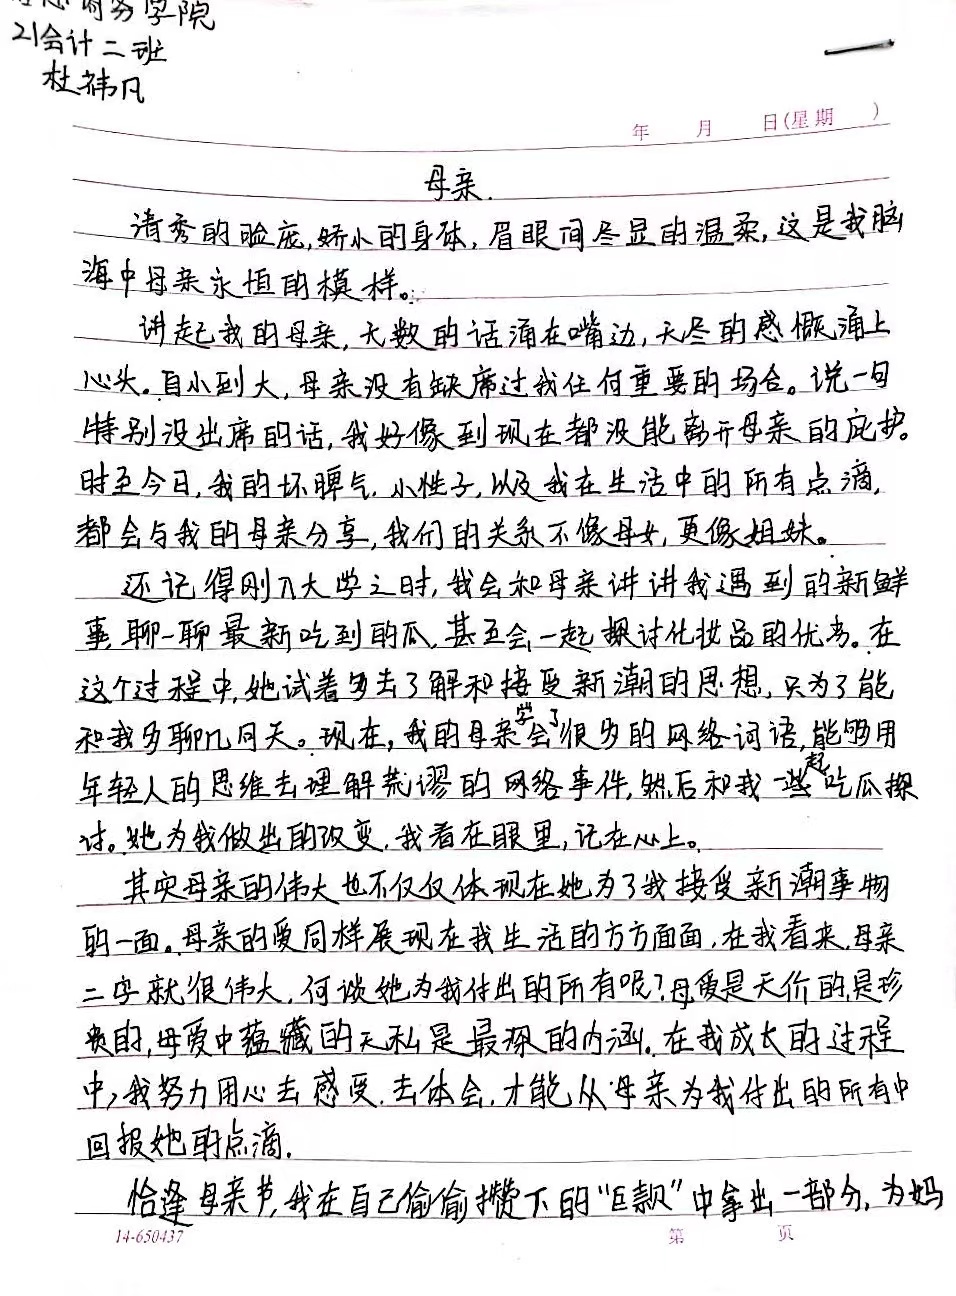 商务学院
21会计二班
杜祎凡
年 月 日(星期 )
母亲.
清秀的脸庞,娇小的身体,眉眼间尽显的温柔,这是我脑
海中母亲永恒的模样。
讲起我的母亲,无数的话涌在嘴边,无尽的感慨涌上
心头。自小到大,母亲没有缺席过我任何重要的场合。说一句
特别没出席的话,我好像到现在都没能离开母亲的庇护。
时至今日,我的坏脾气,小性子,以及我在生活中的所有点滴,
都会与我的母亲分享,我们的关系不像母女,更像姐妹。
还记得刚入大学之时,我会和母亲讲讲我遇到的新鲜
事,聊一聊最新吃到的瓜,甚至会一起探讨化妆品的优劣。在
这个过程中,她试着多去了解和接受新潮的思想,只为了能
和我多聊几句天。现在,我的母亲学会了很多的网络词语,能够用
年轻人的思维去理解荒谬的网络事件,然后和我一起吃瓜探
讨。她为我做出的改变,我看在眼里,记在心上。
其实母亲的伟大也不仅仅体现在她为了我接受新潮事物
的一面。母亲的爱同样展现在我生活的方方面面,在我看来,母亲
二字就很伟大,何谈她为我付出的所有呢?母爱是无价的,是珍
贵的,母爱中蕴藏的无私是最深的内涵。在我成长的过程
中,我努力用心去感受,去体会,才能从母亲为我付出的所有中
回报她的点滴.
恰逢母亲节,我在自己偷偷攒下的“巨款”中拿出一部分,为妈
14-650437
第 页